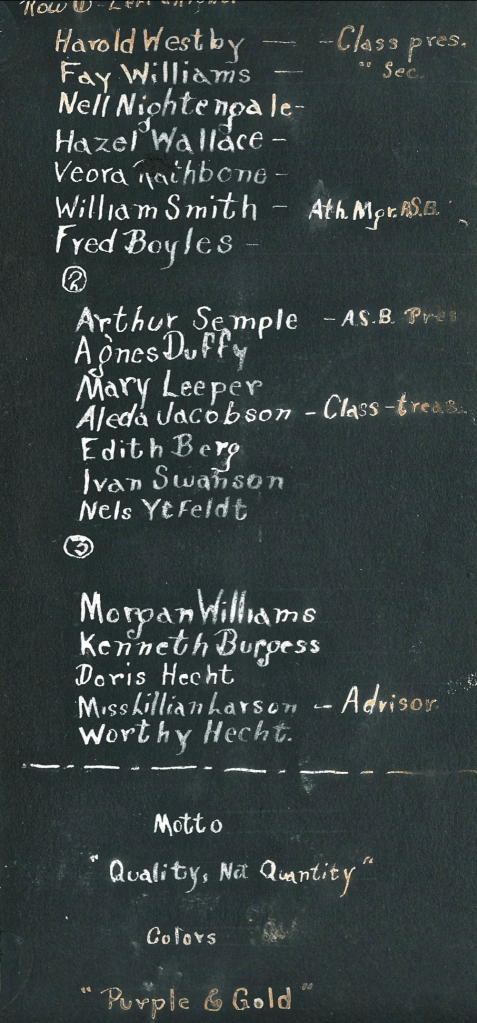 Row ① - Left
Harold Westby — - Class pres.
Fay Williams — " Sec.
Nell Nightengale-
Hazel Wallace -
Veora Rathbone -
William Smith - Ath Mgr. A.S.B.
Fred Boyles -
②
Arthur Semple - A.S.B. Pres
Agnes Duffy
Mary Leeper
Aleda Jacobson - Class-treas.
Edith Berg
Ivan Swanson
Nels Ytfeldt
③
Morgan Williams
Kenneth Burgess
Doris Hecht
Miss Lillian Larson - Advisor
Worthy Hecht.
Motto
"Quality, Not Quantity"
Colors
"Purple & Gold"